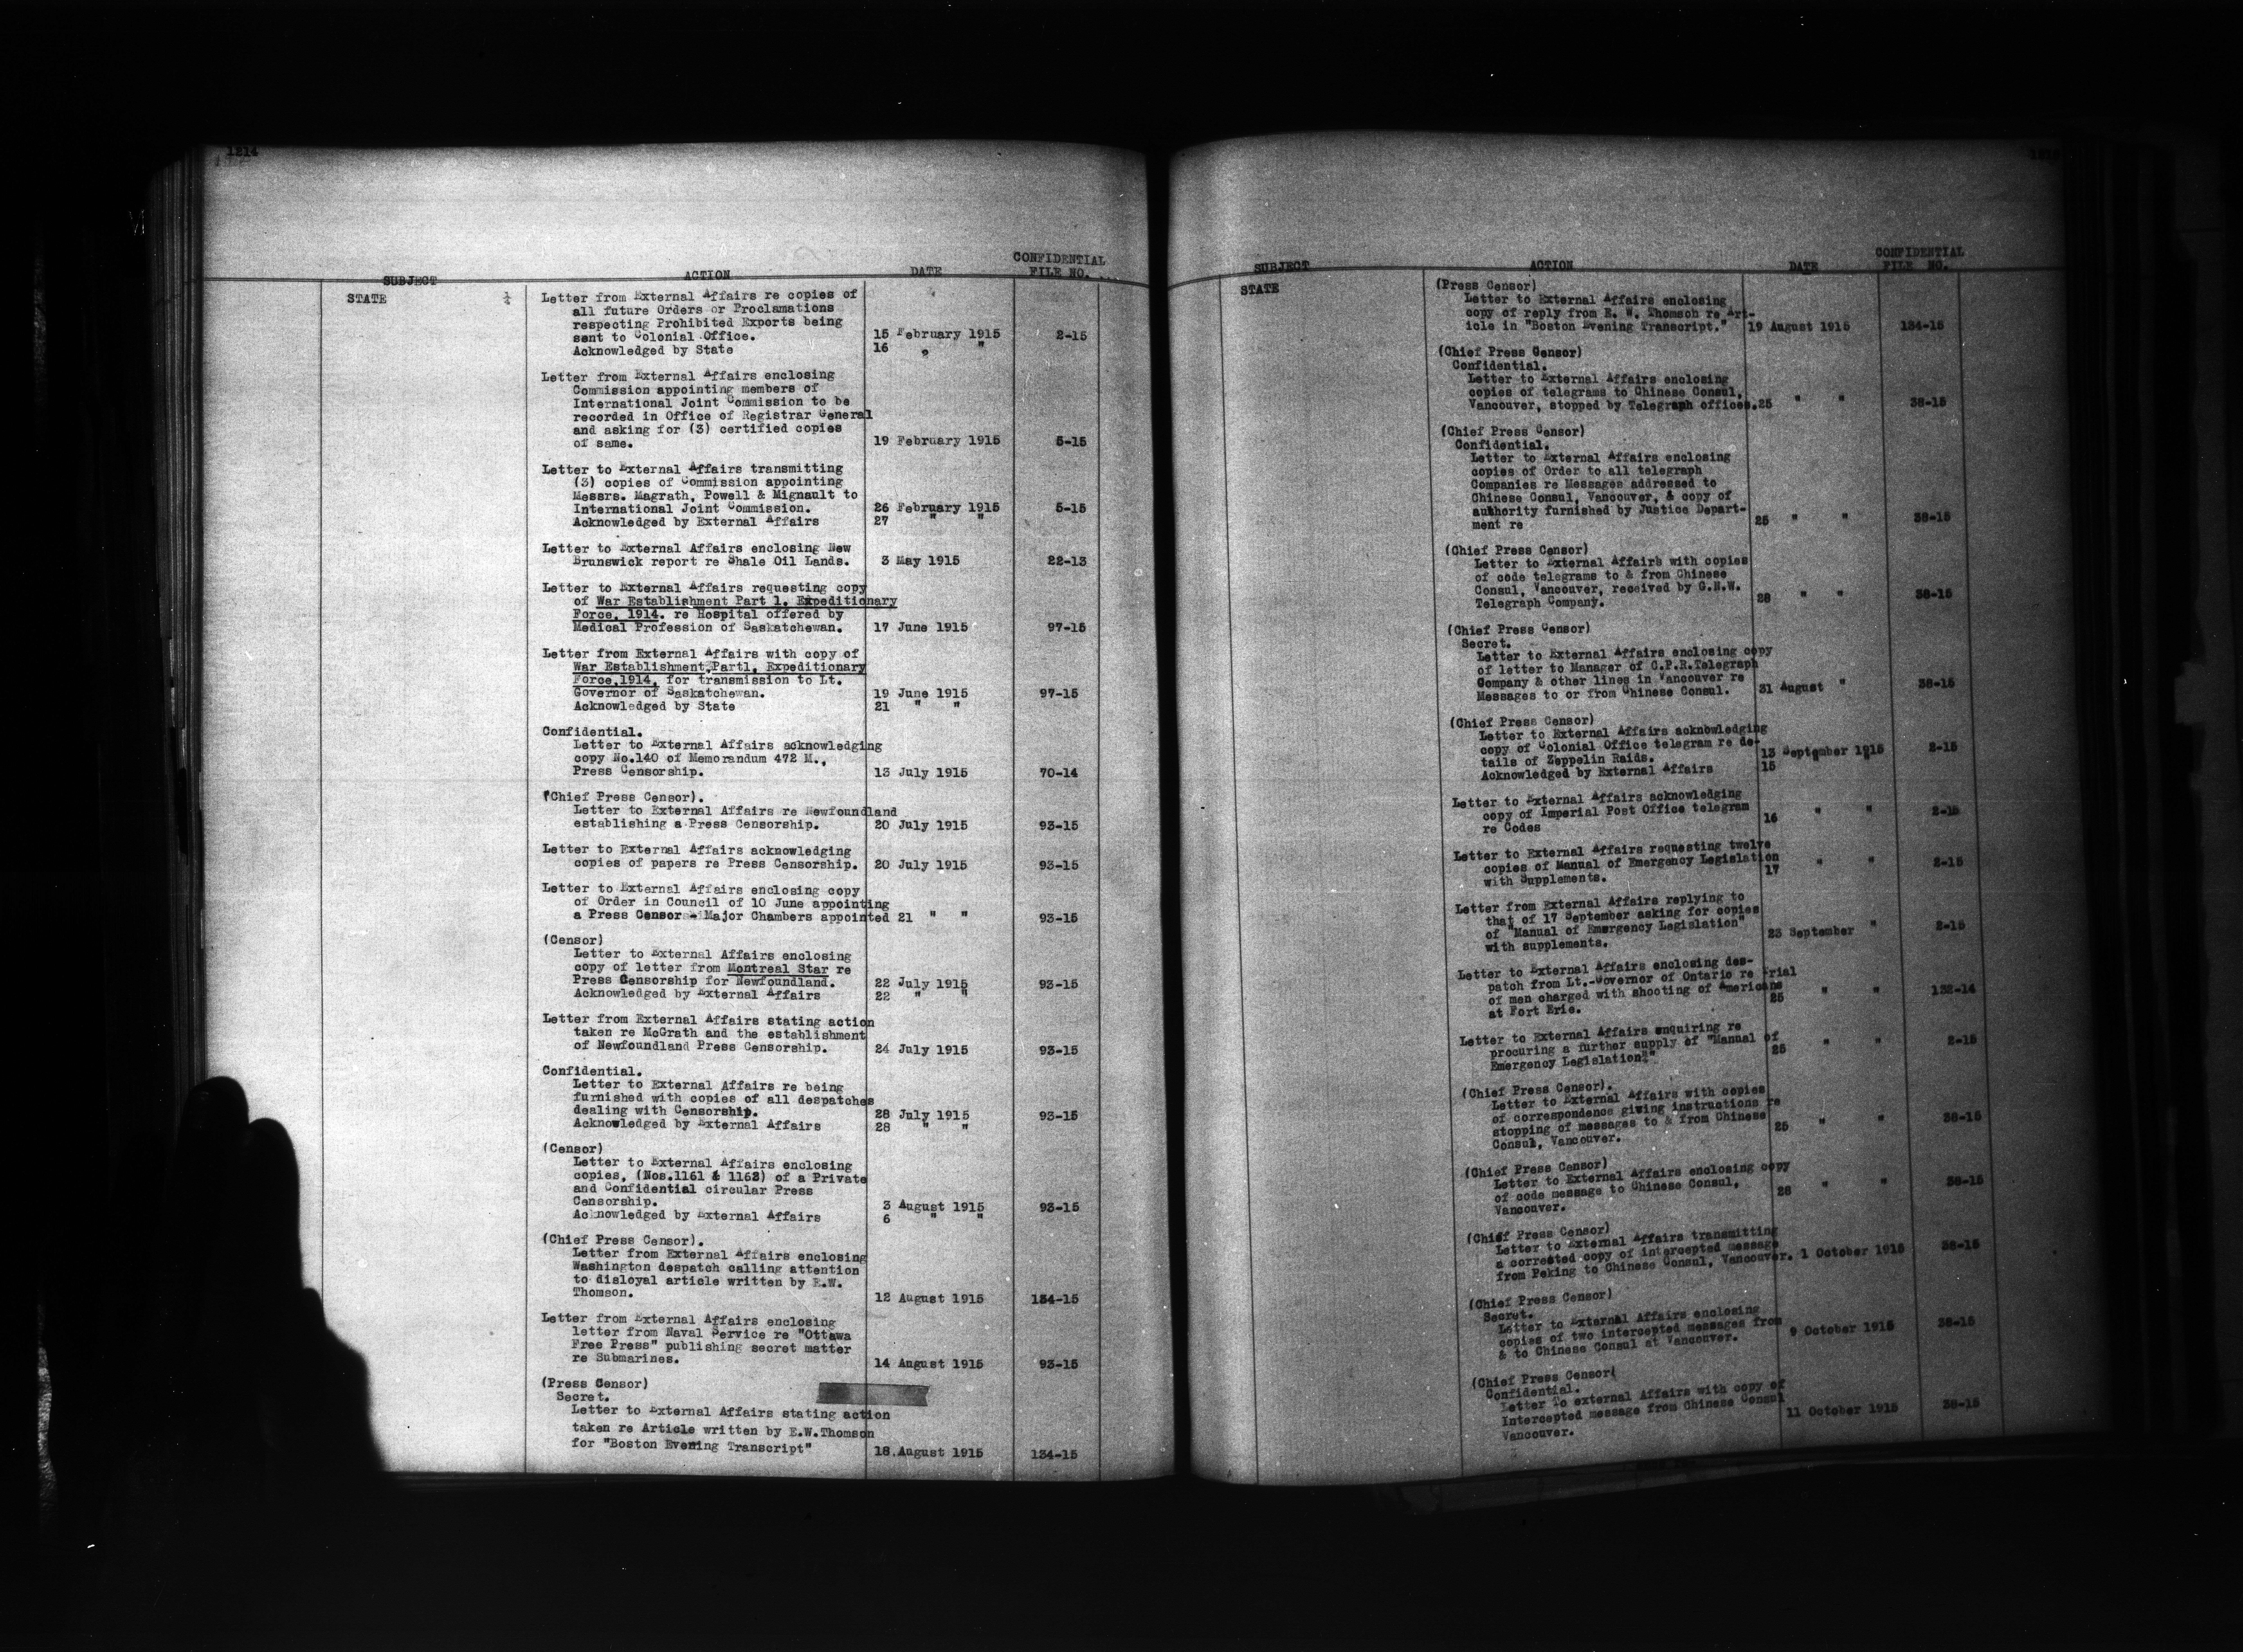 1214
SUBJECT ACTION DATE CONFIDENTIAL FILE NO.
STATE ¼ Letter from External Affairs re copies of
all future Orders or Proclamations
respecting Prohibited Exports being
sent to Colonial Office. 15 February 1915 2-15
Acknowledged by State 16 " "
Letter from External Affairs enclosing
Commission appointing members of
International Joint Commission to be
recorded in Office of Registrar General
and asking for (3) certified copies
of same. 19 February 1915 5-15
Letter to External Affairs transmitting
(3) copies of Commission appointing
Messrs. Magrath, Powell & Mignault to
International Joint Commission. 26 February 1915 5-15
Acknowledged by External Affairs 27 " "
Letter to External Affairs enclosing New
Brunswick report re Shale Oil Lands. 3 May 1915 22-13
Letter to External Affairs requesting copy
of War Establishment Part 1. Expeditionary
Force, 1914. re Hospital offered by
Medical Profession of Saskatchewan. 17 June 1915 97-15
Letter from External Affairs with copy of
War Establishment,Part1. Expeditionary
Force,1914, for transmission to Lt.
Governor of Saskatchewan. 19 June 1915 97-15
Acknowledged by State 21 " "
Confidential.
Letter to External Affairs acknowledging
copy No.140 of Memorandum 472 M.,
Press Censorship. 13 July 1915 70-14
(Chief Press Censor).
Letter to External Affairs re Newfoundland
establishing a Press Censorship. 20 July 1915 93-15
Letter to External Affairs acknowledging
copies of papers re Press Censorship. 20 July 1915 93-15
Letter to External Affairs enclosing copy
of Order in Council of 10 June appointing
a Press Censor - Major Chambers appointed 21 " " 93-15
(Censor)
Letter to External Affairs enclosing
copy of letter from Montreal Star re
Press Censorship for Newfoundland. 22 July 1915 93-15
Acknowledged by External Affairs 22 " "
Letter from External Affairs stating action
taken re McGrath and the establishment
of Newfoundland Press Censorship. 24 July 1915 93-15
Confidential.
Letter to External Affairs re being
furnished with copies of all despatches
dealing with Censorship. 28 July 1915 93-15
Acknowledged by External Affairs 28 " "
(Censor)
Letter to External Affairs enclosing
copies, (Nos.1161 & 1162) of a Private
and Confidential circular Press
Censorship. 3 August 1915 93-15
Acknowledged by External Affairs 6 " "
(Chief Press Censor).
Letter from External Affairs enclosing
Washington despatch calling attention
to disloyal article written by E.W.
Thomson. 12 August 1915 134-15
Letter from External Affairs enclosing
letter from Naval Service re "Ottawa
Free Press" publishing secret matter
re Submarines. 14 August 1915 93-15
(Press Censor)
Secret.
Letter to External Affairs stating action
taken re Article written by E.W.Thomson
for "Boston Evening Transcript" 18.August 1915 134-15
SUBJECT ACTION DATE CONFIDENTIAL FILE NO.
STATE (Press Censor)
Letter to External Affairs enclosing
copy of reply from E. W. Thomson re Art-
icle in "Boston Evening Transcript." 19 August 1915 134-15
(Chief Press Censor)
Confidential.
Letter to External Affairs enclosing
copies of telegrams to Chinese Consul,
Vancouver, stopped by Telegraph offices. 25 " " 38-15
(Chief Press Censor)
Confidential.
Letter to External Affairs enclosing
copies of Order to all telegraph
Companies re Messages addressed to
Chinese Consul, Vancouver, & copy of
authority furnished by Justice Depart-
ment re 25 " " 38-15
(Chief Press Censor)
Letter to External Affairs with copies
of code telegrams to & from Chinese
Consul, Vancouver, received by G.N.W.
Telegraph Company. 28 " " 38-15
(Chief Press Censor)
Secret.
Letter to External Affairs enclosing copy
of letter to Manager of C.P.R.Telegraph
Company & other lines in Vancouver re
Messages to or from Chinese Consul. 31 August " 38-15
(Chief Press Censor)
Letter to External Affairs acknowledging
copy of Colonial Office telegram re de-
tails of Zeppelin Raids. 13 September 1915 2-15
Acknowledged by External Affairs 15 " "
Letter to External Affairs acknowledging
copy of Imperial Post Office telegram
re Codes 16 " " 2-15
Letter to External Affairs requesting twelve
copies of Manual of Emergency Legislation
with Supplements. 17 " " 2-15
Letter from External Affairs replying to
that of 17 September asking for copies
of "Manual of Emergency Legislation"
with supplements. 23 September " 2-15
Letter to External Affairs enclosing des-
patch from Lt.-Governor of Ontario re trial
of men charged with shooting of Americans
at Fort Erie. 25 " " 132-14
Letter to External Affairs enquiring re
procuring a further supply of "Manual of
Emergency Legislation." 25 " " 2-15
(Chief Press Censor).
Letter to External Affairs with copies
of correspondence giving instructions re
stopping of messages to & from Chinese
Consul, Vancouver. 25 " " 38-15
(Chief Press Censor)
Letter to External Affairs enclosing copy
of code message to Chinese Consul,
Vancouver. 28 " " 38-15
(Chief Press Censor)
Letter to External Affairs transmitting
a corrected copy of intercepted message
from Peking to Chinese Consul, Vancouver. 1 October 1915 38-15
(Chief Press Censor)
Secret.
Letter to External Affairs enclosing
copies of two intercepted messages from
& to Chinese Consul at Vancouver. 9 October 1915 38-15
(Chief Press Censor(
Confidential.
Letter To external Affairs with copy of
Intercepted message from Chinese Consul
Vancouver. 11 October 1915 38-15